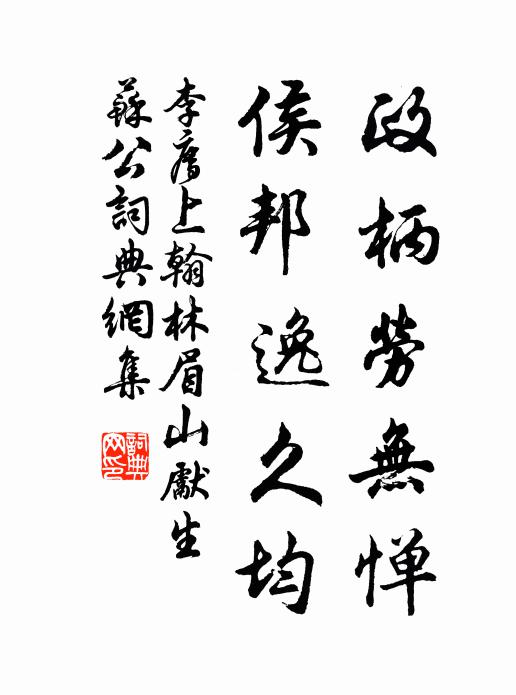 政柄勞無憚
侯邦逸久均
李廌上翰林眉山獻生
蘇公詞典網集
詞典網印